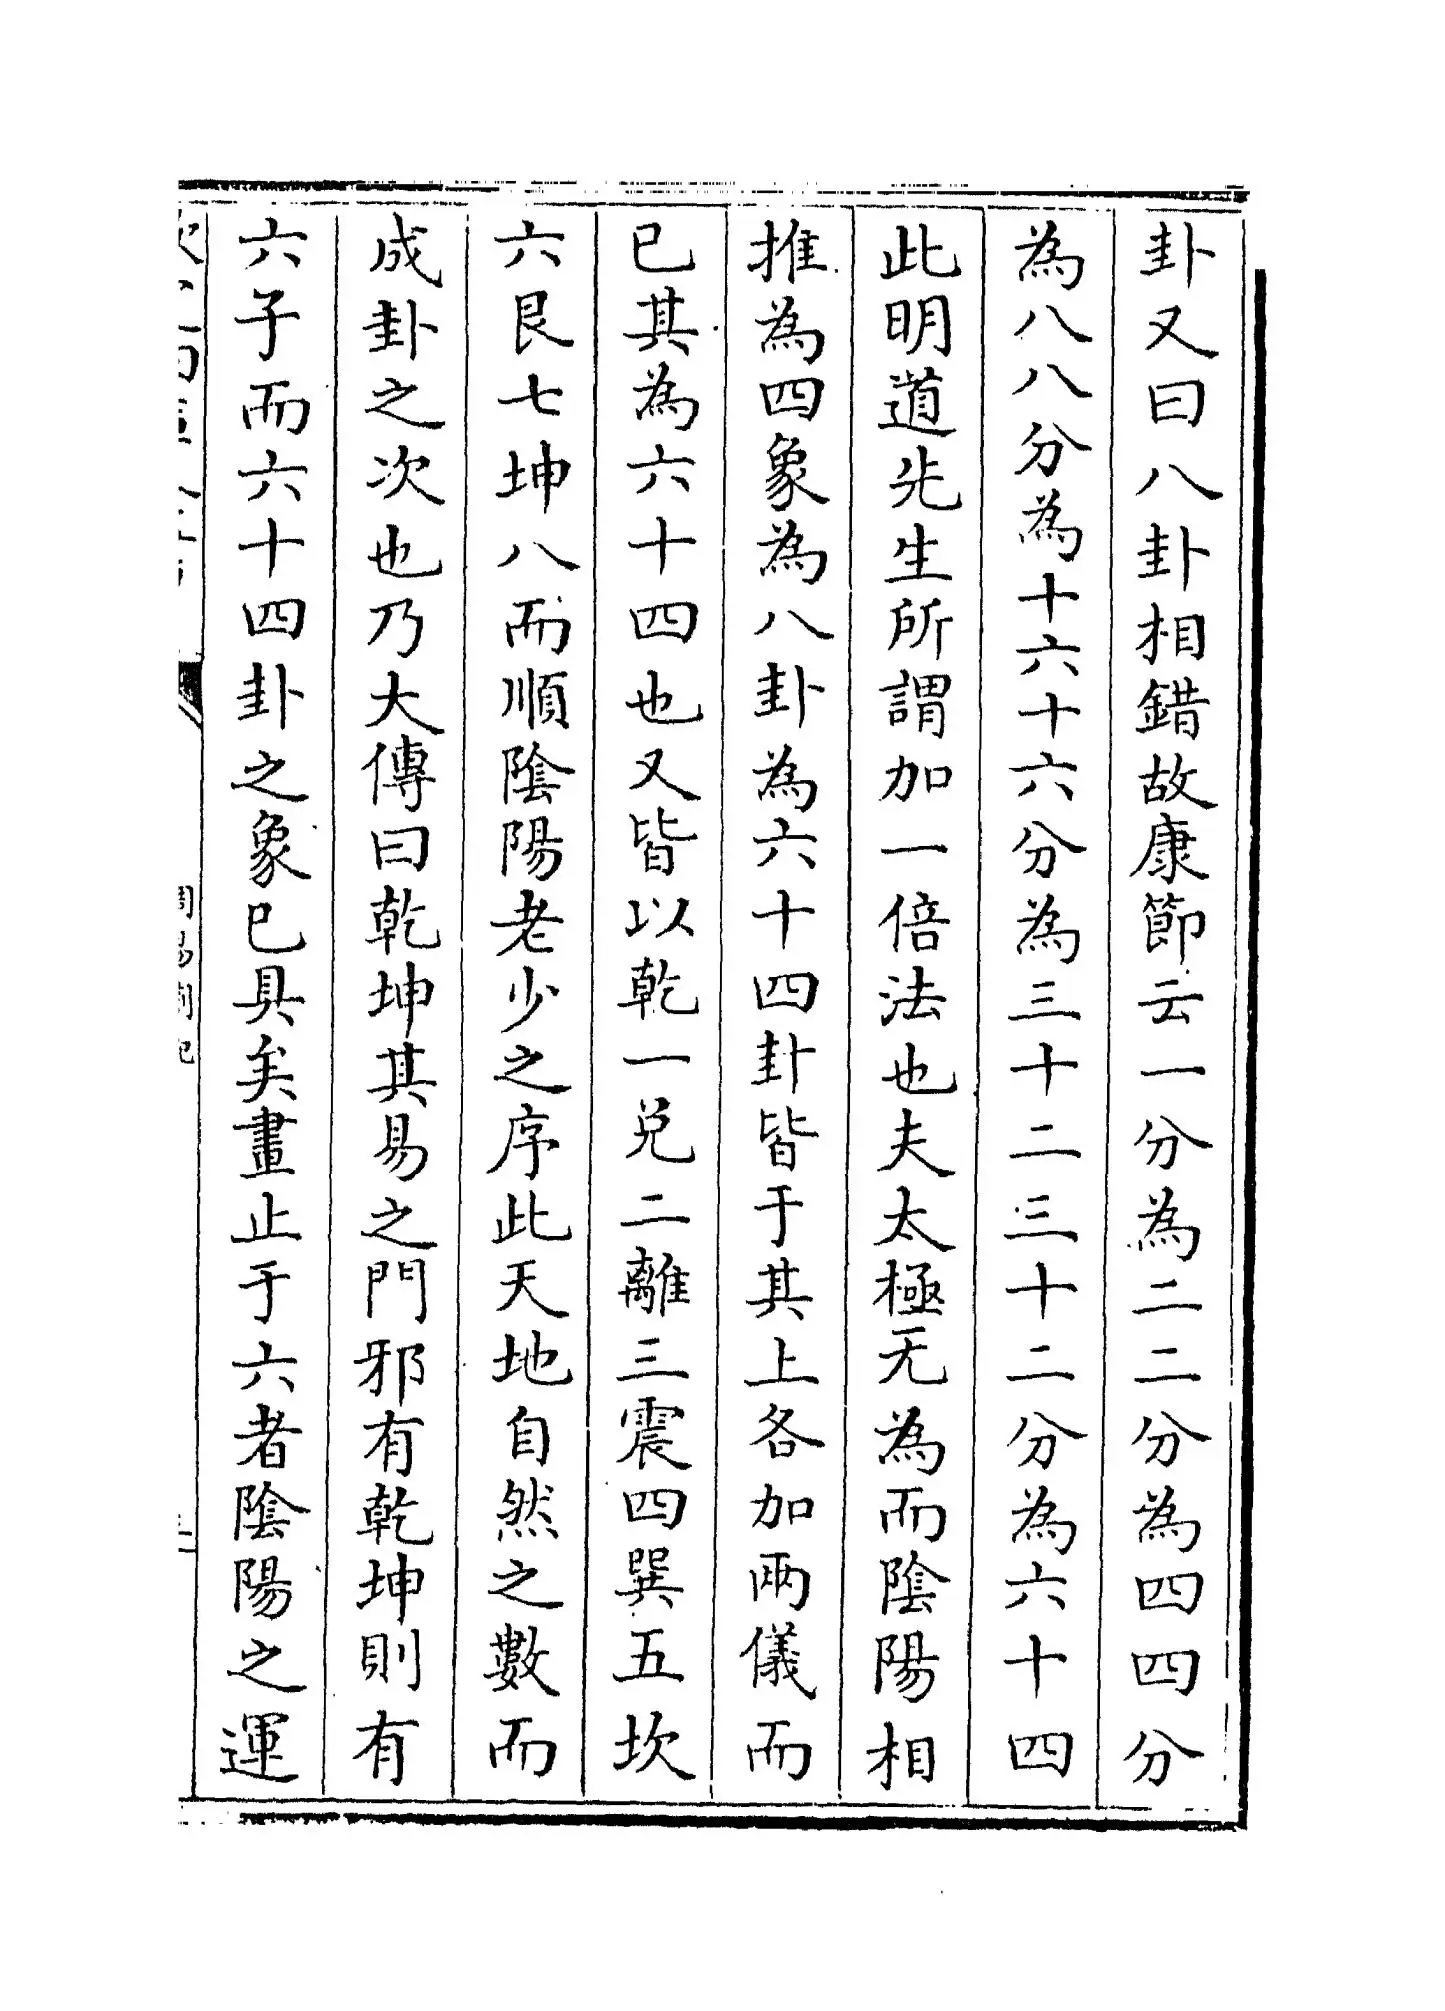 卦又曰八卦相錯故康節云一分為二二分為四四分
為八八分為十六十六分為三十二三十二分為六十四
此明道先生所謂加一倍法也夫太極无為而陰陽相
推為四象為八卦為六十四卦皆于其上各加兩儀而
已其為六十四也又皆以乾一兌二離三震四巽五坎
六艮七坤八而順陰陽老少之序此天地自然之數而
成卦之次也乃大傳曰乾坤其易之門邪有乾坤則有
六子而六十四卦之象已具矣畫止于六者陰陽之運